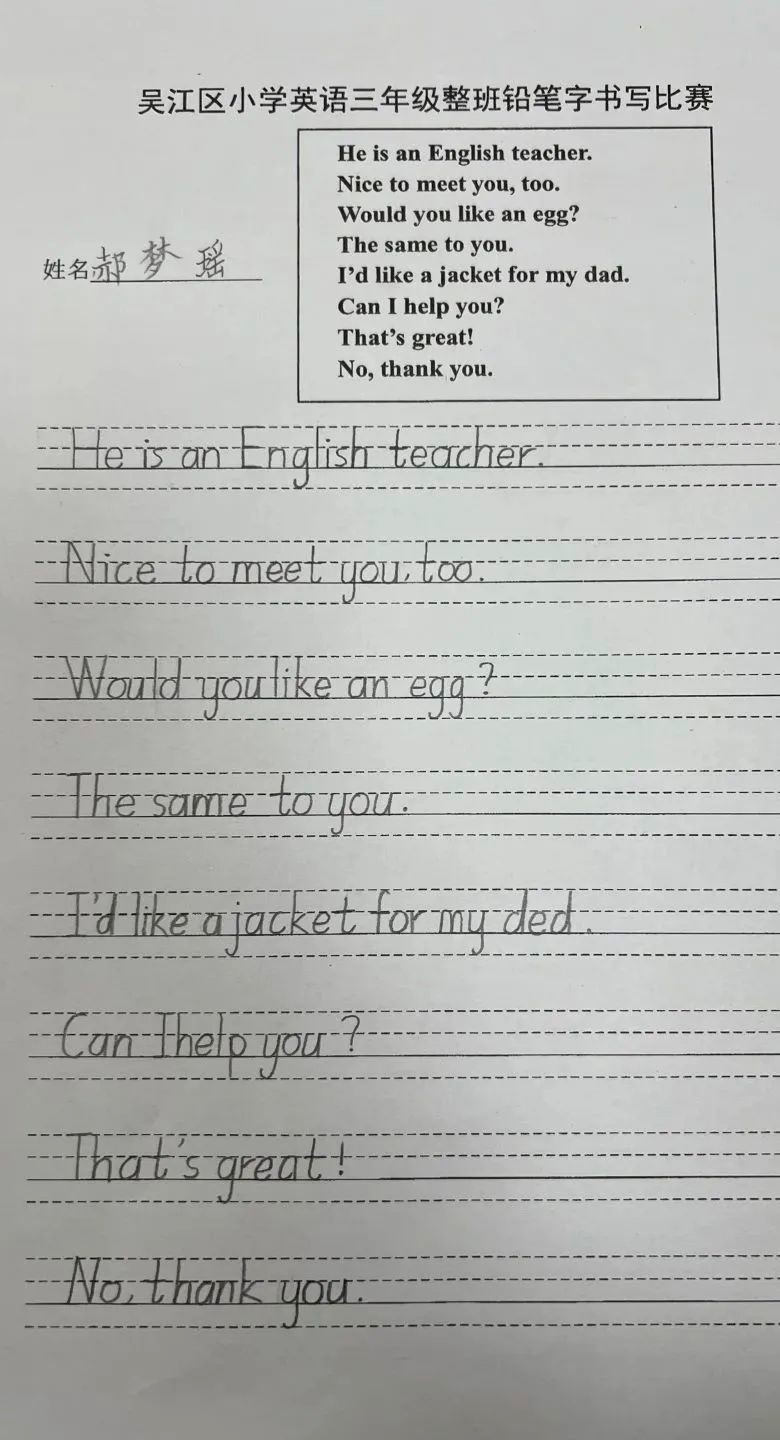 吴江区小学英语三年级整班铅笔字书写比赛
He is an English teacher.
Nice to meet you, too.
Would you like an egg?
The same to you.
I'd like a jacket for my dad.
Can I help you?
That's great!
No, thank you.
姓名郝梦瑶
He is an English teacher.
Nice to meet you, too.
Would you like an egg?
The same to you.
I'd like a jacket for my ded.
Can I help you?
That's great!
No, thank you.